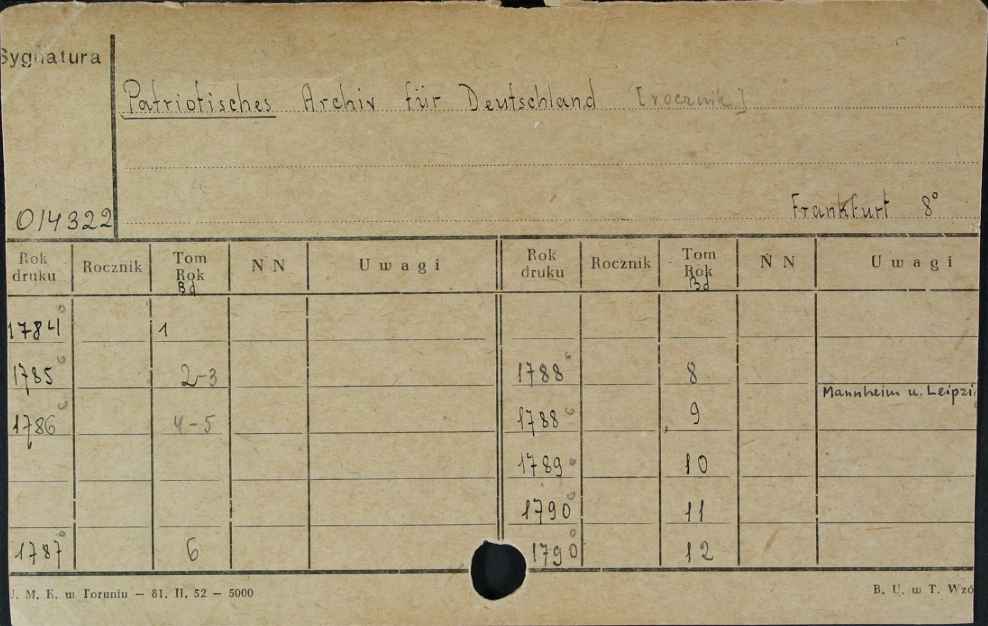 Sygnatura
Patriotisches Archiv für Deutschland [rocznik]
014322
Frankfurt 8°
Rok druku Rocznik Tom Rok Bd N N U w a g i Rok druku Rocznik Tom Rok Bd N N U w a g i
1784° 1
1785° 2-3 1788° 8
Mannheim u. Leipzi
1786° 4-5 1788° 9
1789° 10
1790° 11
1787° 6 1790° 12
J. M. K. w Toruniu — 81. II. 52 — 5000
B. U. w T. Wzó